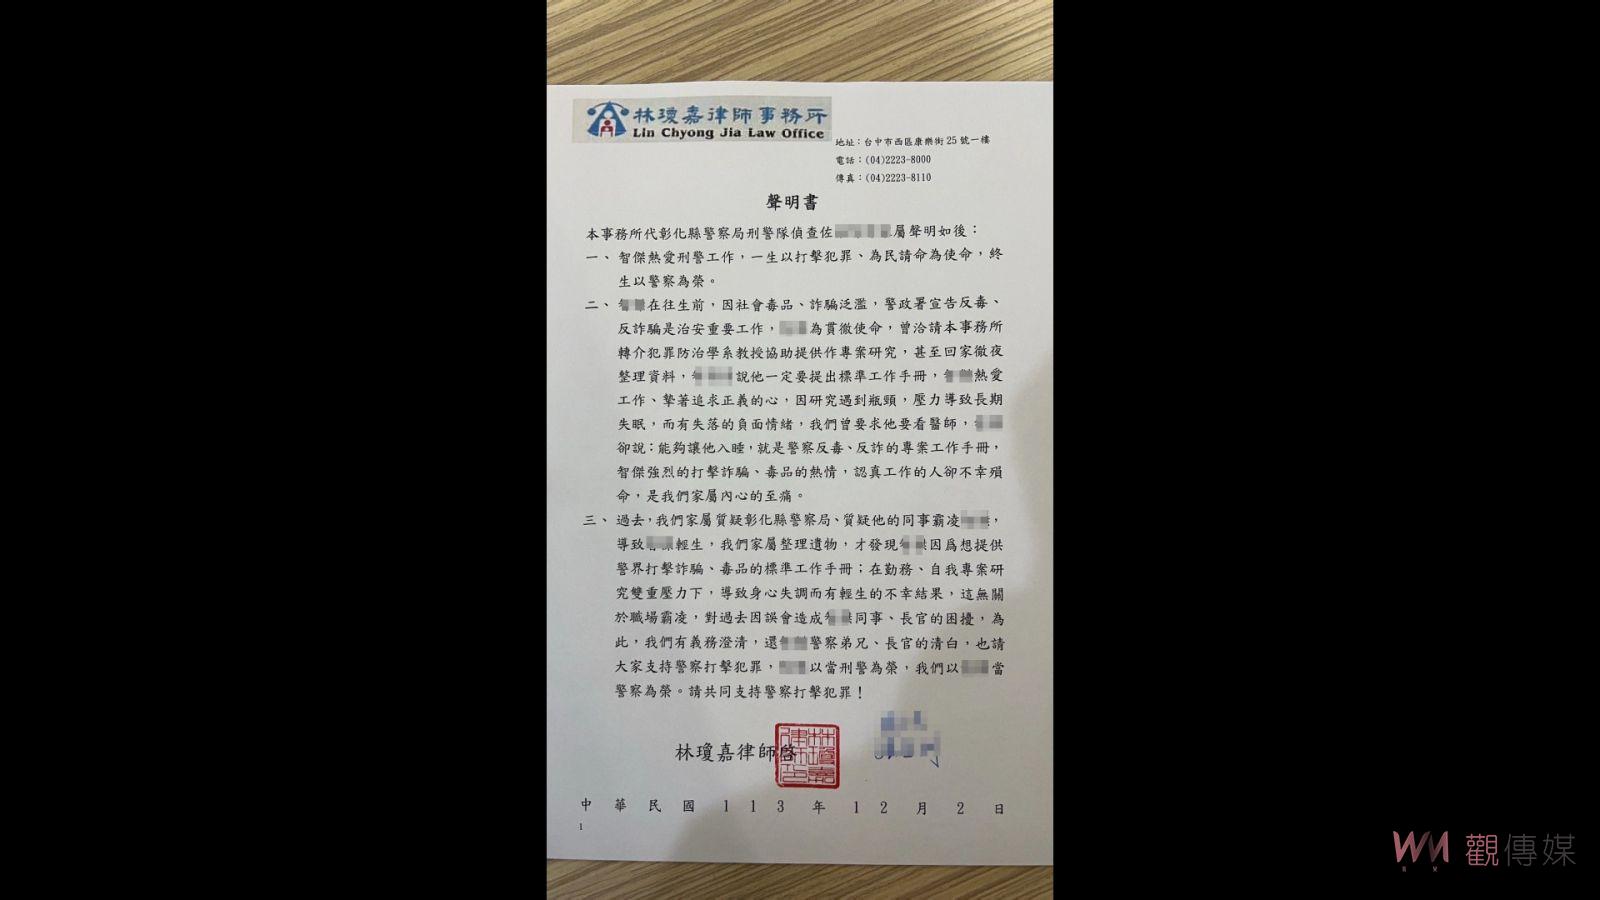 林瓊嘉律師事務所
Lin Chyong Jia Law Office
地址：台中市西區康樂街25號一樓
電話：(04)2223-8000
傳真：(04)2223-8110
聲明書
本事務所代彰化縣警察局刑警隊偵查佐 屬聲明如後：
一、智傑熱愛刑警工作，一生以打擊犯罪、為民請命為使命，終
生以警察為榮。
二、 在往生前，因社會毒品、詐騙泛濫，警政署宣告反毒、
反詐騙是治安重要工作， 為貫徹使命，曾洽請本事務所
轉介犯罪防治學系教授協助提供作專案研究，甚至回家徹夜
整理資料， 說他一定要提出標準工作手冊， 熱愛
工作、摯著追求正義的心，因研究遇到瓶頸，壓力導致長期
失眠，而有失落的負面情緒，我們曾要求他要看醫師，
卻說：能夠讓他入睡，就是警察反毒、反詐的專案工作手冊，
智傑強烈的打擊詐騙、毒品的熱情，認真工作的人卻不幸殞
命，是我們家屬內心的至痛。
三、過去，我們家屬質疑彰化縣警察局、質疑他的同事霸凌 ，
導致 輕生，我們家屬整理遺物，才發現 因爲想提供
警界打擊詐騙、毒品的標準工作手冊；在勤務、自我專案研
究雙重壓力下，導致身心失調而有輕生的不幸結果，這無關
於職場霸凌，對過去因誤會造成 同事、長官的困擾，為
此，我們有義務澄清，還 警察弟兄、長官的清白，也請
大家支持警察打擊犯罪， 以當刑警為榮，我們以 當
警察為榮。請共同支持警察打擊犯罪！
林瓊嘉律師啓
中華民國113年12月2日
1
WM 觀傳媒